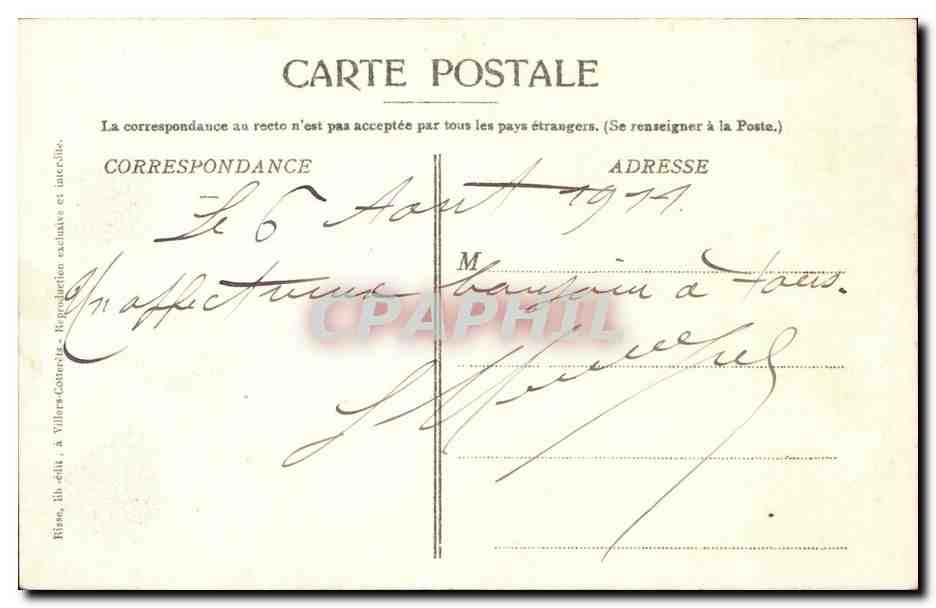 CARTE POSTALE
La correspondance au recto n'est pas acceptée par tous les pays étrangers. (Se renseigner à la Poste.)
CORRESPONDANCE
ADRESSE
Le 6 Aout 1911.
M
Un affectueux bonjour a tous.
CPAPHIL
Risse, lib.-édit., à Villers-Cotterêts - Reproduction exclusive et interdite.